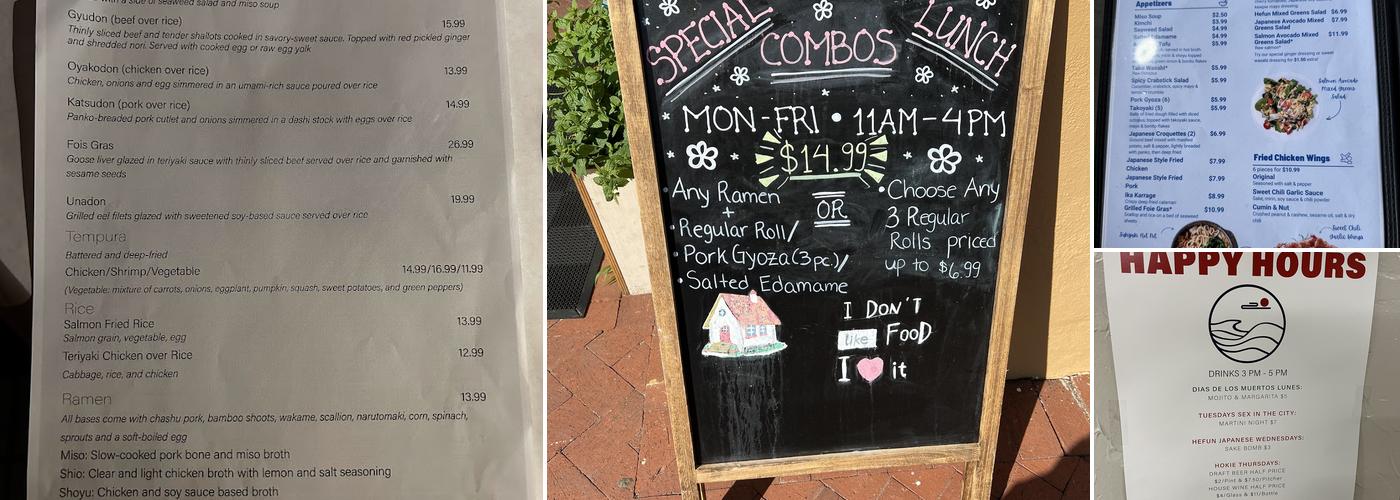 with a side of seaweed salad and miso soup
Gyudon (beef over rice) 15.99
Thinly sliced beef and tender shallots cooked in savory-sweet sauce. Topped with red pickled ginger
and shredded nori. Served with cooked egg or raw egg yolk
Oyakodon (chicken over rice) 13.99
Chicken, onions and egg simmered in an umami-rich sauce poured over rice
Katsudon (pork over rice) 14.99
Panko-breaded pork cutlet and onions simmered in a dashi stock with eggs over rice
Fois Gras 26.99
Goose liver glazed in teriyaki sauce with thinly sliced beef served over rice and garnished with
sesame seeds
Unadon 19.99
Grilled eel filets glazed with sweetened soy-based sauce served over rice
Tempura
Battered and deep-fried
Chicken/Shrimp/Vegetable 14.99/16.99/11.99
(Vegetable: mixture of carrots, onions, eggplant, pumpkin, squash, sweet potatoes, and green peppers)
Rice
Salmon Fried Rice 13.99
Salmon grain, vegetable, egg
Teriyaki Chicken over Rice 12.99
Cabbage, rice, and chicken
Ramen 13.99
All bases come with chashu pork, bamboo shoots, wakame, scallion, narutomaki, corn, spinach,
sprouts and a soft-boiled egg
Miso: Slow-cooked pork bone and miso broth
Shio: Clear and light chicken broth with lemon and salt seasoning
Shoyu: Chicken and soy sauce based broth
SPECIAL LUNCH
COMBOS
MON-FRI • 11AM-4PM
$14.99
• Any Ramen
+
• Regular Roll/
• Pork Gyoza (3pc.)/
• Salted Edamame
OR
• Choose Any
3 Regular
Rolls priced
up to $6.99
I DON'T
like FOOD
I it
Appetizers
Miso Soup $2.50
Kimchi $3.99
Seaweed Salad $4.99
Salted Edamame $4.99
Tofu $5.99
Tako Wasabi* $5.99
Spicy Crabstick Salad $5.99
Pork Gyoza (6) $5.99
Takoyaki (5) $5.99
Balls of fried dough filled with diced
octopus, topped with takoyaki sauce,
mayo & bonito flakes
Japanese Croquettes (2) $6.99
Japanese Style Fried $7.99
Chicken
Japanese Style Fried $7.99
Pork
Ika Karrage $8.99
Grilled Foie Gras* $10.99
Scallop and rice on a bed of seaweed
sheets
Hefun Mixed Greens Salad $6.99
Japanese Avocado Mixed $7.99
Greens Salad
Salmon Avocado Mixed $11.99
Greens Salad*
Raw salmon*
Try our special ginger dressing or sweet
wasabi dressing for $1.50 extra!
Salmon Avocado
Mixed Greens
Salad
Fried Chicken Wings
6 pieces for $10.99
Original
Seasoned with salt & pepper
Sweet Chili Garlic Sauce
Sake, mirin, soy sauce & chili powder
Cumin & Nut
Crushed peanut & cashew, sesame oil, salt & dry
chili
Sukiyaki Hot Pot
Sweet Chili
Garlic Wings
HAPPY HOURS
DRINKS 3 PM - 5 PM
DIAS DE LOS MUERTOS LUNES:
MOJITO & MARGARITA $5
TUESDAYS SEX IN THE CITY:
MARTINI NIGHT $7
HEFUN JAPANESE WEDNESDAYS:
SAKE BOMB $3
HOKIE THURSDAYS:
DRAFT BEER HALF PRICE
$2/Pint & $7.50/Pitcher
HOUSE WINE HALF PRICE
$4/Glass & $11/Bottle